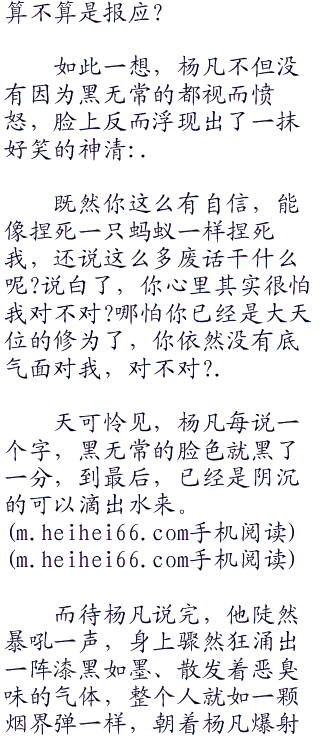 算不算是报应?
如此一想，杨凡不但没
有因为黑无常的都视而愤
怒，脸上反而浮现出了一抹
好笑的神清:.
既然你这么有自信，能
像捏死一只蚂蚁一样捏死
我，还说这么多废话干什么
呢?说白了，你心里其实很怕
我对不对?哪怕你已经是大天
位的修为了，你依然没有底
气面对我，对不对?.
天可怜见，杨凡每说一
个字，黑无常的脸色就黑了
一分，到最后，已经是阴沉
的可以滴出水来。
(m.heihei66.com手机阅读)
(m.heihei66.com手机阅读)
而待杨凡说完，他陡然
暴吼一声，身上骤然狂涌出
一阵漆黑如墨、散发着恶臭
味的气体，整个人就如一颗
烟界弹一样，朝着杨凡爆射